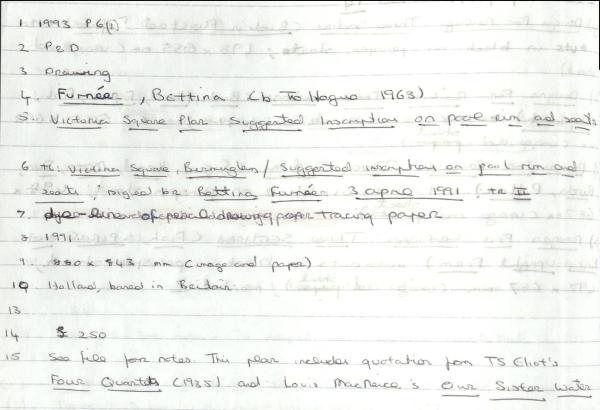 1 1993 P6(1)
2 P&D
3 Drawing
4. Furnée, Bettina (b The Hague 1963)
5. Victoria Square Plan Suggested Inscriptions on pool rim and seats
6 tl: Victoria Square, Birmingham / Suggested inscriptions on pool rim and
seats / signed br: Bettina Furnée. 3 april 1991. tr II
7. tracing paper
8 1991
9. 880 x 843 mm (image and paper)
10 Holland, based in Britain
13
14 £ 250
15 See file for notes. This plan includes quotation from TS Eliot's
Four Quartets (1935) and Louis MacNeice's Our Sister Water